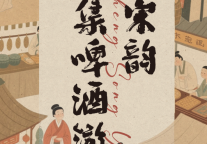 宋韵
集啤酒
heng Song